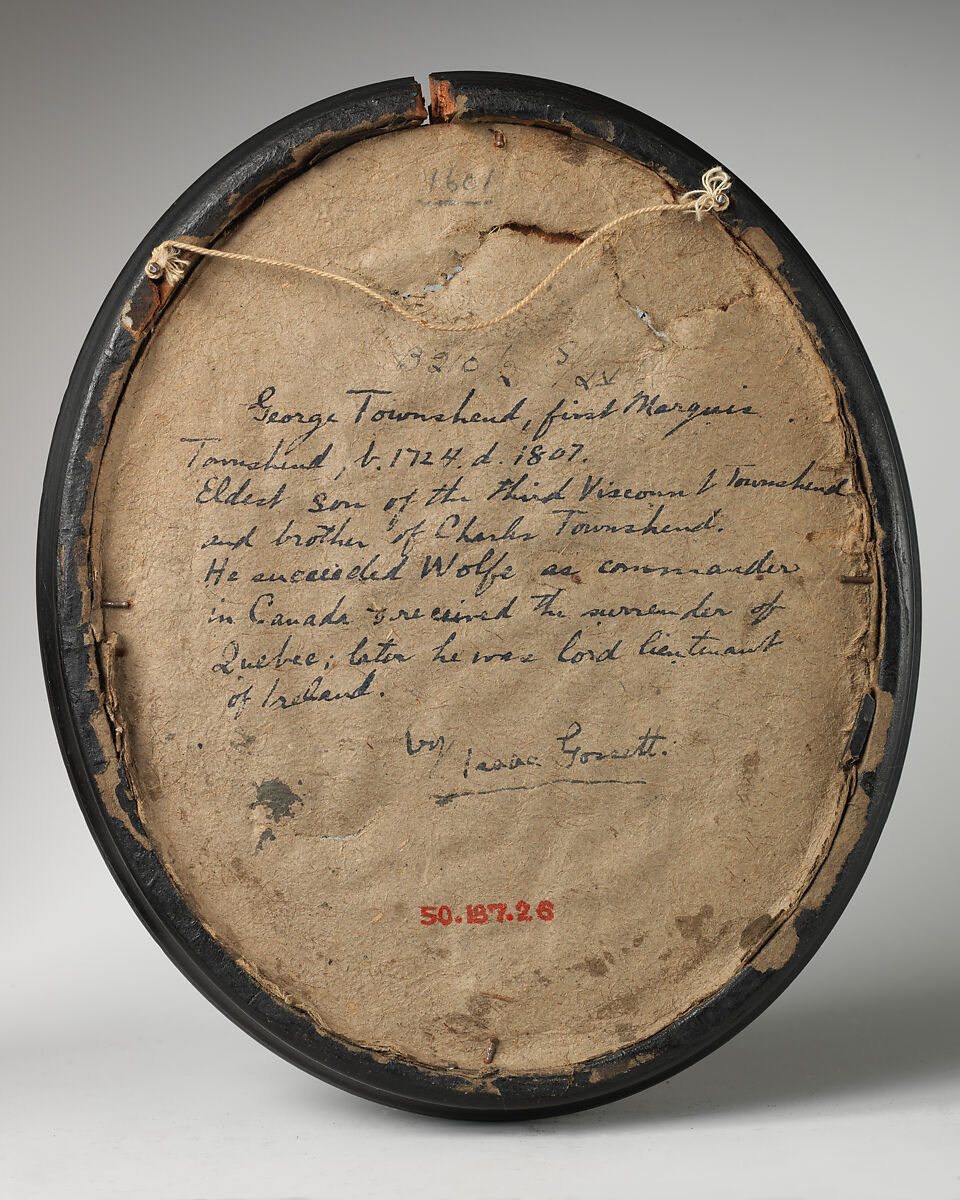 1601
George Townshend, first Marquis
Townshend, b. 1724. d. 1807.
Eldest son of the third Viscount Townshend
and brother of Charles Townshend.
He succeeded Wolfe as commander
in Canada & received the surrender of
Quebec; later he was lord lieutenant
of Ireland.
by Isaac Gossett.
50.187.26